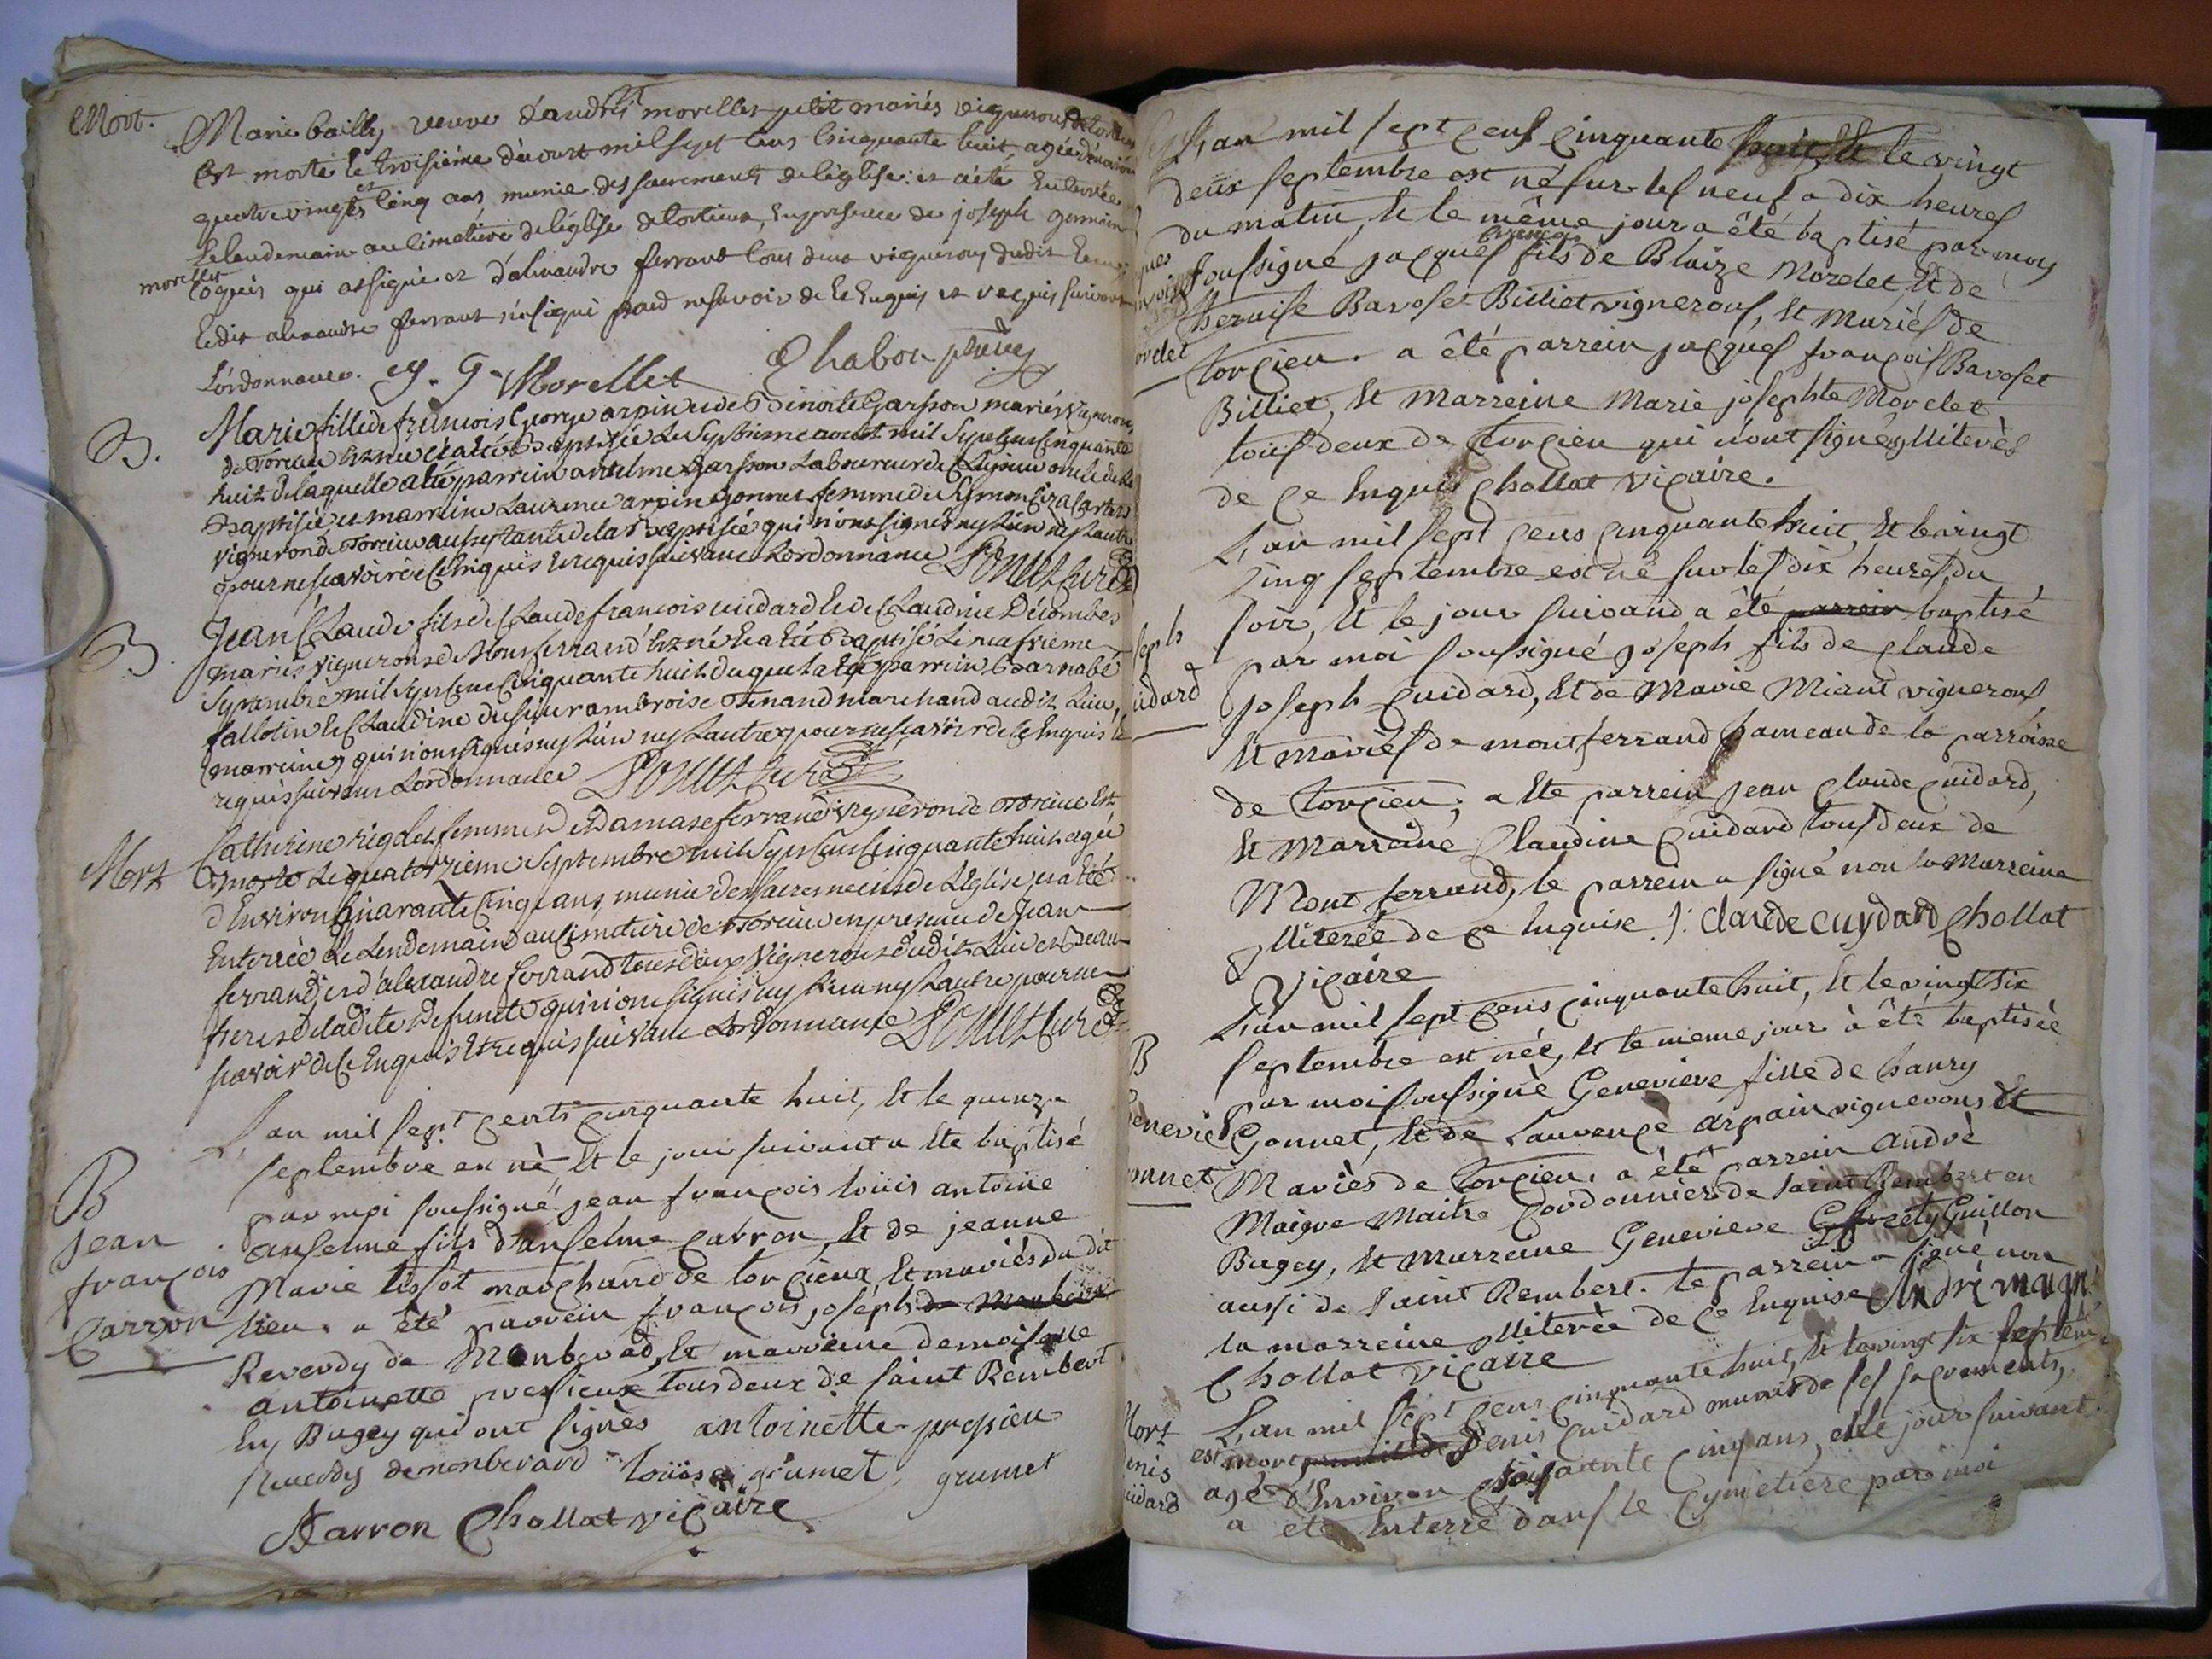 Mort.
Marie bailly veuve d'andrés morellet petit mariés vignerons de
Est morte le troisiéme d'aoust mil sept cens cinquante huit, agée d'environ
quatre vingts et cinq ans munie des sacrements de léglise : et a été Enterrée
Le lendemain au cimetiére de léglise de torcieux, En presence de joseph germain
morellet
qui assigné et d'alexandre ferrant tous deux vignerons dudit lieu
Ledit alexandre ferrant n'a signé pour ne savoir de ce Enquis et requis suivant
L'ordonnance. J. G. Morellet Chabou
B.
Marie fille de francois George arpin et de Benoite Garsson mariés vignerons
de Torcieu Est née et a été Baptisée Le Septieme aoust mil Sept Cens Cinquante
huit de laquelle a été parrein antelme Garsson Laboureur de oncle de la
Baptisée et marreine Laurence arpin Gonnet femme de Simon
vigneron de Torcieu aussy tante de la Baptisée qui n'ont signés ny L'un ny L'autre
pour ne scavoir de Ce Enquis et requis suivant Lordonnance Ponet Curé
B.
Jean Claude fils de Claude francois cuidard et de Claudine Décombes
mariés vignerons de Montferrand Est né et a été Baptisé Le neufvieme
Septembre mil Sept Cens Cinquante huit duquel a été parrein Barnabé
fallotin et Claudine du sieur ambroise Tenand marchand audit Lieu,
marreine, qui n'ont signés ny L'un ny L'autre, pour ne scavoir de Ce Enquis et
requis suivant Lordonnance Ponet Curé
Mort
Catherine rigolet femme de Damase ferrand vigneron de Torcieu Est
morte Le quatorzieme Septembre mil Sept Cens Cinquante huit agée
d'Environ Quarante Cinq ans, munie des sacremens de L'Eglise, et a été
Enterrée Le Lendemain au Cimetiére de Torcieu en presence de Jean
ferrand et d'alexandre ferrand tous deux vignerons dudit Lieu et Beau
freres de ladite Defuncte qui n'ont signés ny L'un ny L'autre pour ne
scavoir de Ce Enquis Et requis suivant Lordonnance Ponet Curé
L'an mil sept cents cinquante huit, Et le quinze
B
septembre est né, Et le jour suivant a Eté baptisé
par moi soussigné jean françois loüis antoine
Jean
anselme fils d'anselme carron, Et de jeanne
françois
Marie tissot marchand de torcieux, Et mariés du dit
Carron
lieu. a été parrein françois joseph de Monbera
Reverdy de Monberad, Et marreine demoiselle
antoinette pressieux tous deux de saint Rembert
En Bugey qui ont signés antoinette pressieu
Reverdy demonberard loüise grumet grumet
Carron Chollat vicaire
L'an mil sept cens cinquante huit, Et le vingt
deux septembre est né sur les neuf a dix heures
du matin, Et le même jour a été baptisé par moy
françois
soussigné jacques fils de Blaize Morelet, Et de
theraise Bavoset Billiet vignerons, Et mariés de
orelet
torcieu. a été parrein jacques françois Bavoset
Billiet, Et Marreine Marie josephte Morelet
tous deux de torcieu qui n'ont signés Illiterès
de ce Enquis Chollat vicaire.
L'an mil sept cens cinquante huit, Et le vingt
cinq septembre est né sur les dix heures du
soir, Et le jour suivand a été parrein baptisé
seph
par moi soussigné joseph fils de claude
uidard
joseph cuidard, Et de Marie Miant vignerons
Et mariés de montferrand hameau de la parroisse
de torcieu ; a Ete parrein jean claude cuidard,
Et Marreine Claudine Cuidard tous deux de
Mont ferrand, le parrein a signé non la Marreine
Illiterée de ce Enquise. j: claude cuydard Chollat
vicaire
L'an mil sept cens cinquante huit, Et le vingt six
B
septembre est née, Et le meme jour a été baptisée
par moi soussigné Genevieve fille de hanry
enevié
Gonnet, Et de Laurence arpain vignerons Et
onnet
Mariés de torcieu. a été parrein andrè
Maigre Maitre Cordonnier de saint Rembert en
Bugey, Et Marreine Genevieve Guillon
aussi de saint Rembert. le parrein a signé, non
la marreine Illiterée de ce Enquise André maigr
Chollat vicaire
L'an mil sept cens cinquante huit, Et le vingt six septem
Mort
est mort Denis Cuidard munis de ses sacrements,
enis
agé d'Environ soixante cinq ans, et le jour suivant
uidard
a eté Enterré dans le Cymetiere par moi